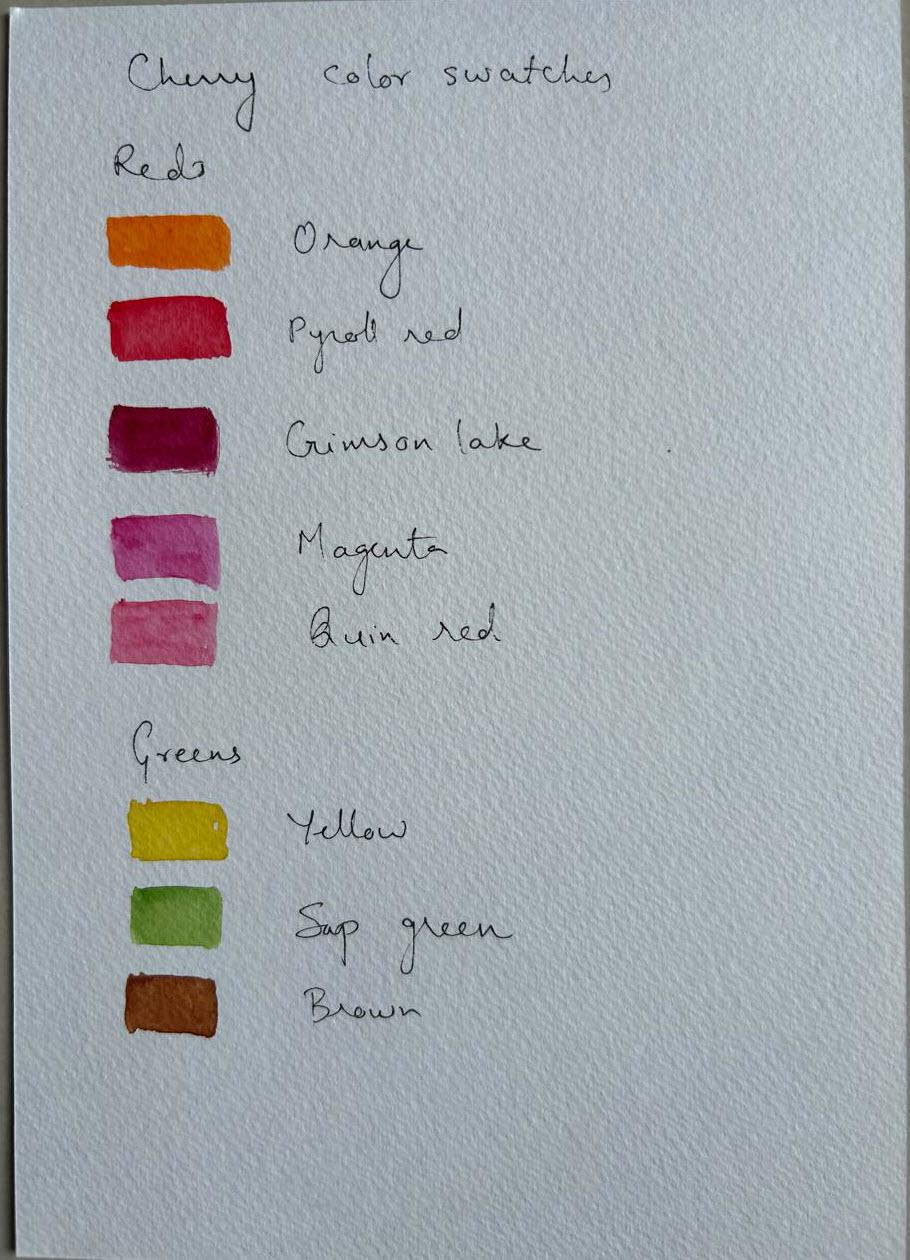 Cherry color swatches
Reds
Orange
Pyroll red
Crimson lake
Magenta
Quin red
Greens
Yellow
Sap green
Brown